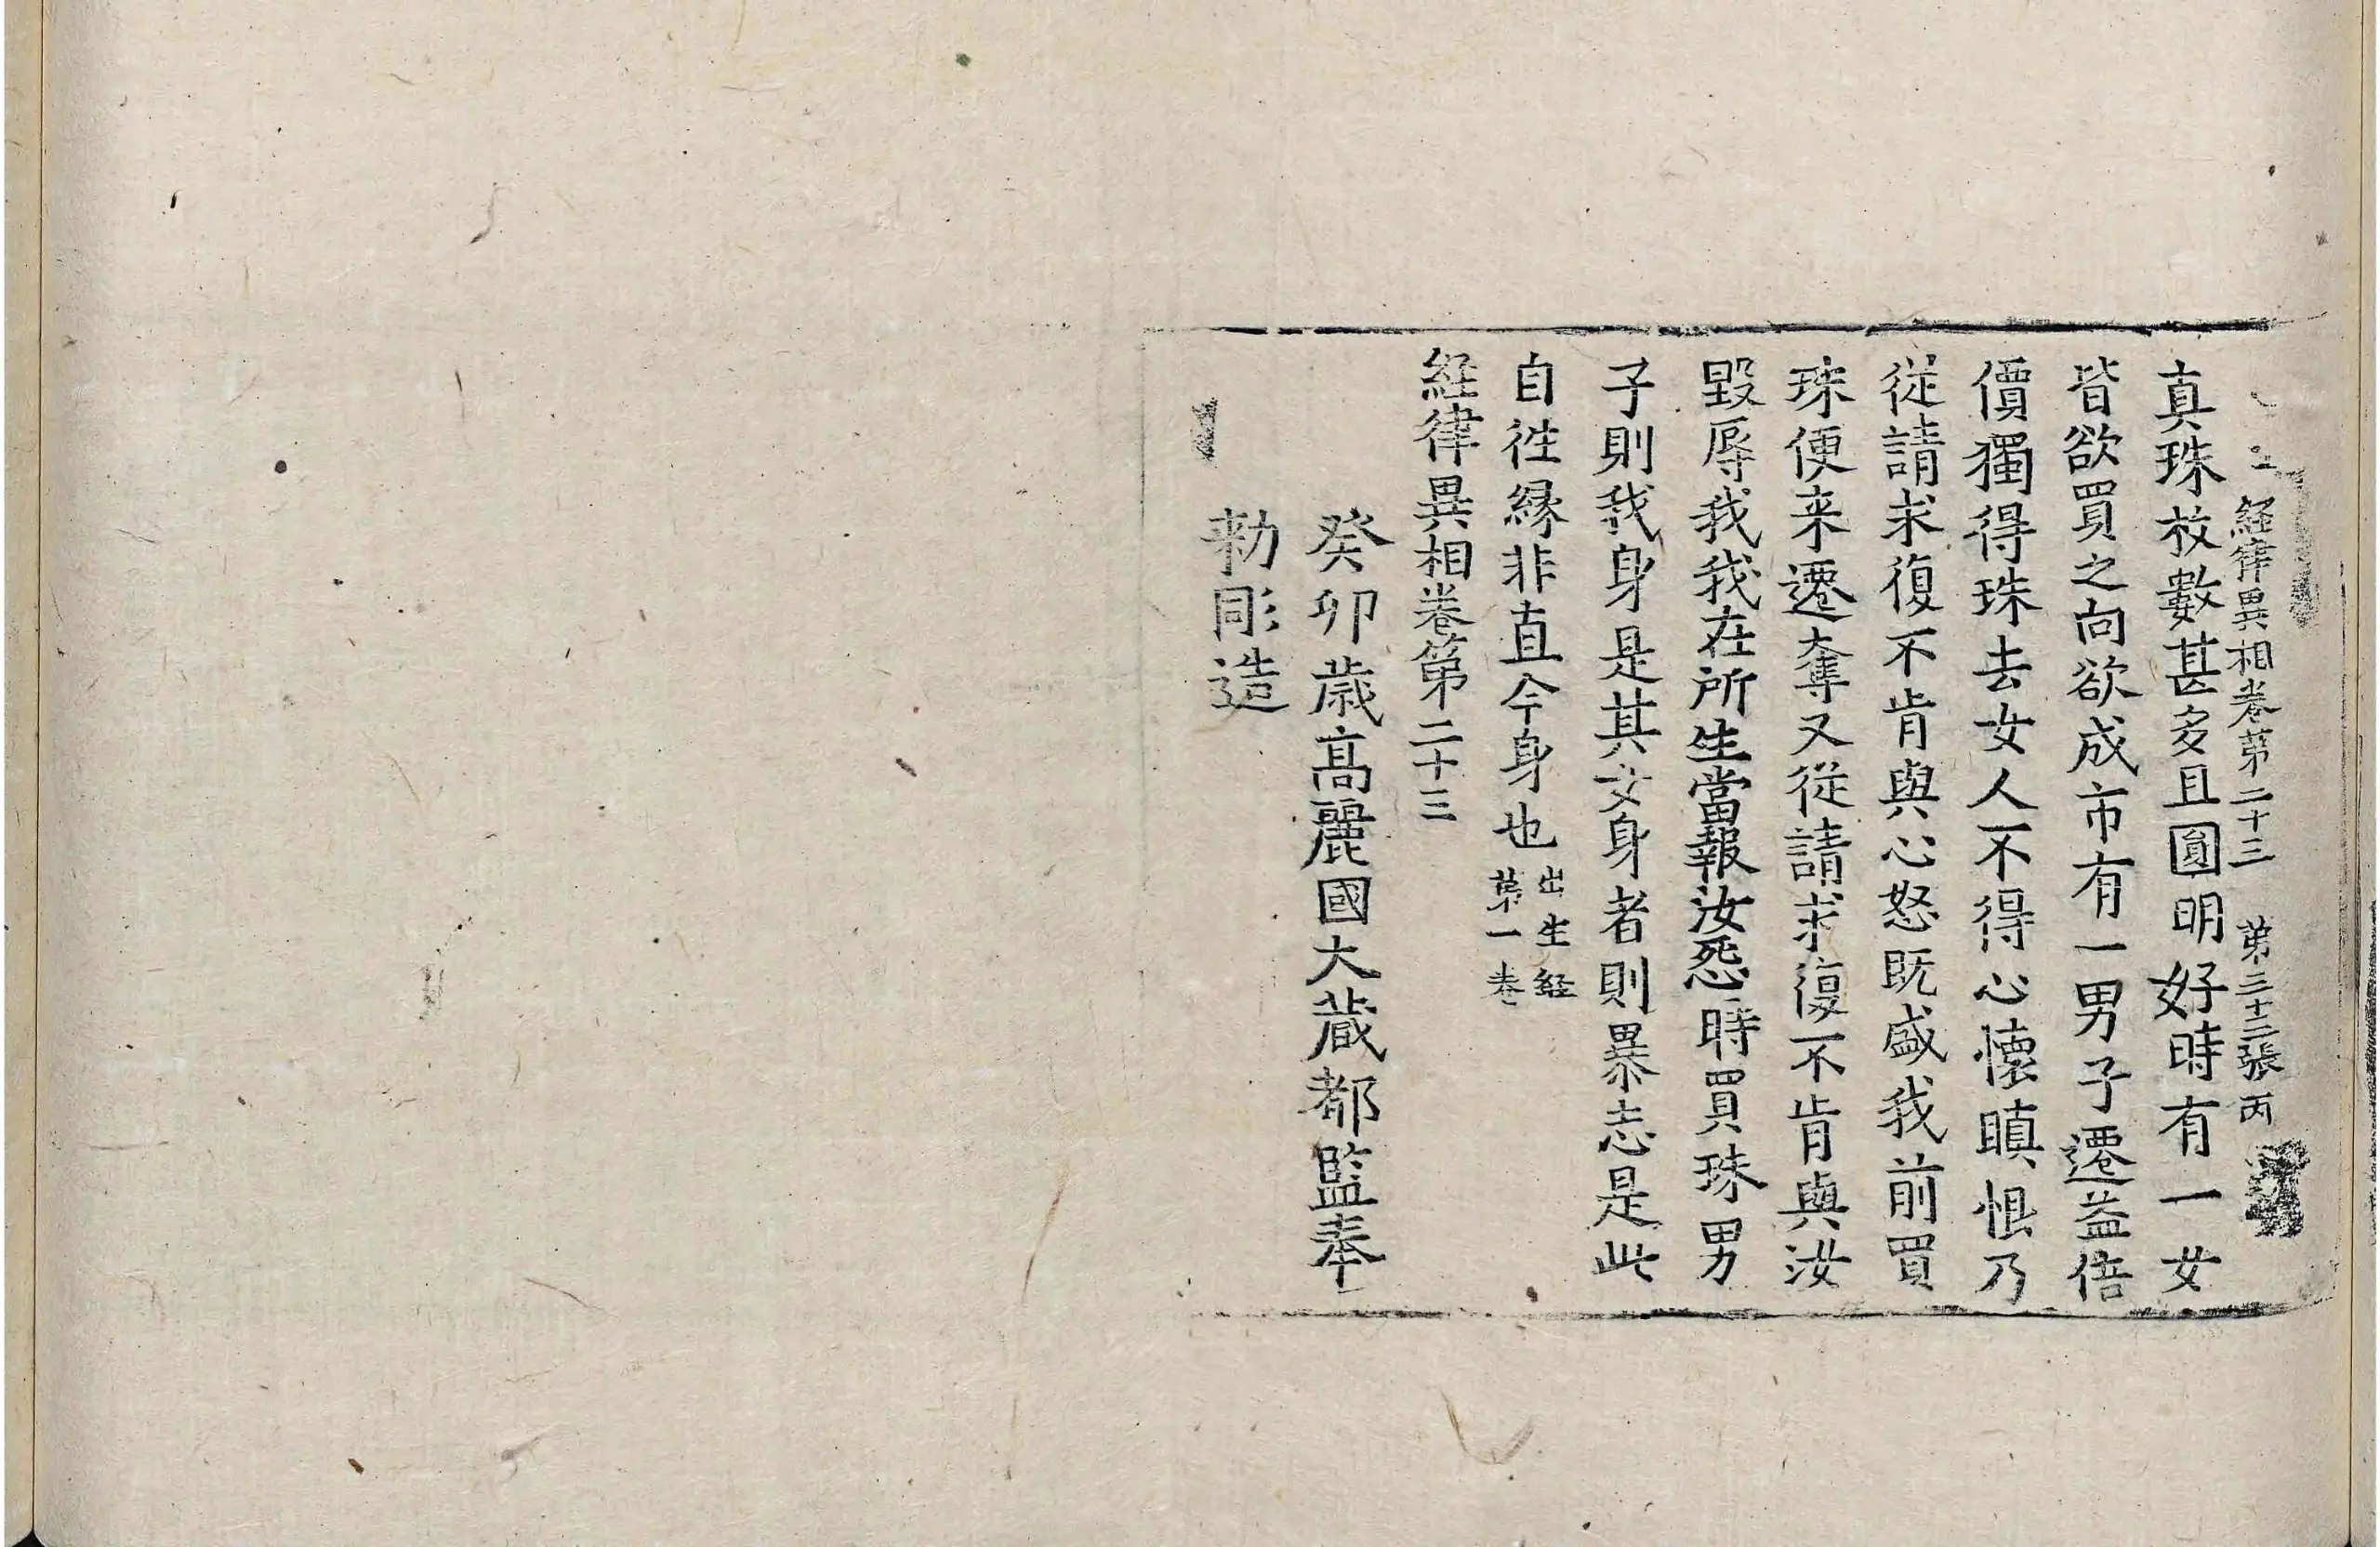 経律異相卷第二十三 第三十二張 丙
真珠枚數甚多且圓明好時有一女
皆欲買之向欲成市有一男子遷益倍
價獨得珠去女人不得心懷瞋恨乃
従請求復不肯與心怒既盛我前買
珠便来遷奪又従請求復不肯與汝
毀辱我我在所生當報汝怨時買珠男
子則我身是其女身者則暴志是此
自徃縁非直今身也 出生経
第一卷
経律異相卷第二十三
癸卯歲高麗國大蔵都監奉
勑彫造